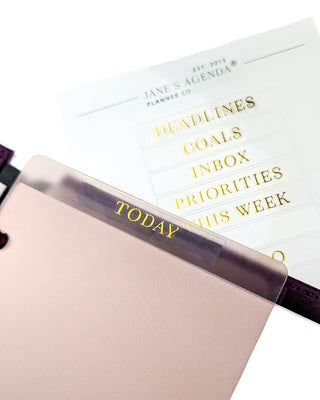 EST. 2015
JANE'S AGENDA®
PLANNER CO.
DEADLINES
GOALS
INBOX
PRIORITIES
THIS WEEK
O
TODAY